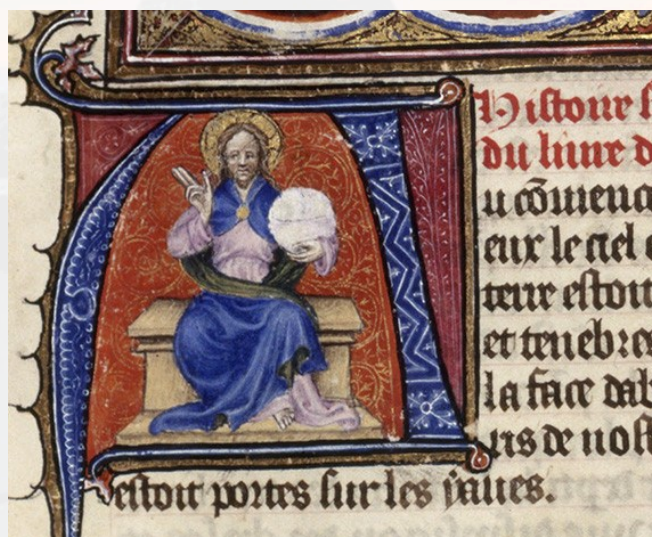 Histoire s
du liure d
A
u cōmenca
eux le ciel e
terre estoit
et tenebres
la face dab
urs de nost
estoit portes sur les yaues.